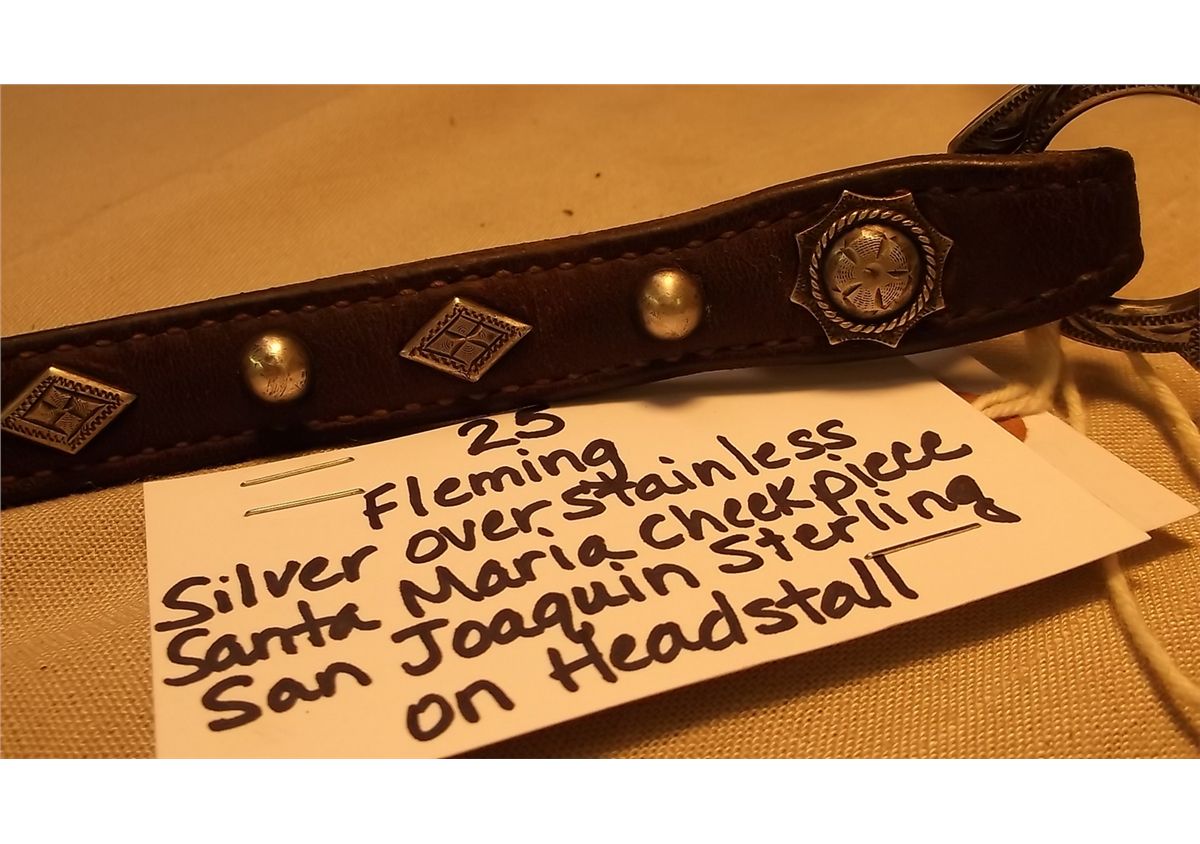 25
Fleming
Silver over Stainless
Santa Maria Cheekpiece
San Joaquin Sterling
on Headstall